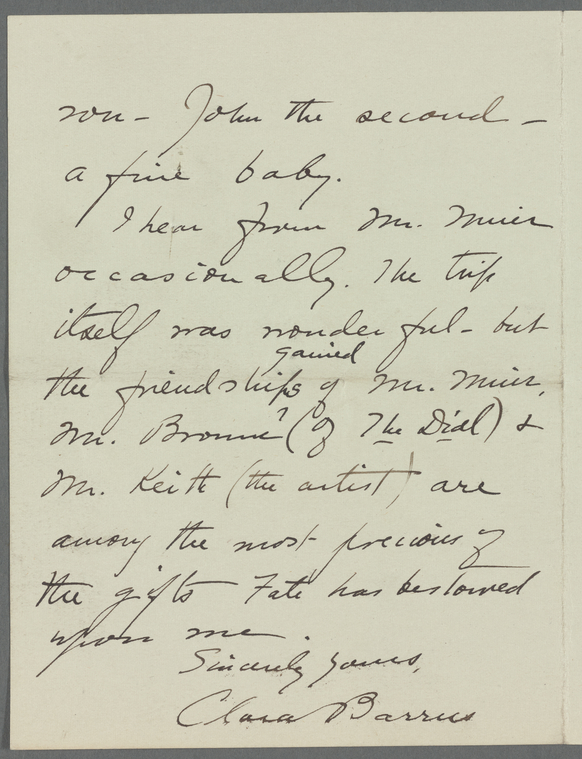 son - John the second -
a fine baby.
I hear from Mr. Muir
occasionally. The trip
itself was wonderful - but
gained
the friendships of Mr. Muir,
Mr. Browne (of The Dial) &
Mr. Keith (the artist) are
among the most precious of
the gifts Fate has bestowed
upon me.
Sincerely yours,
Clara Barrus